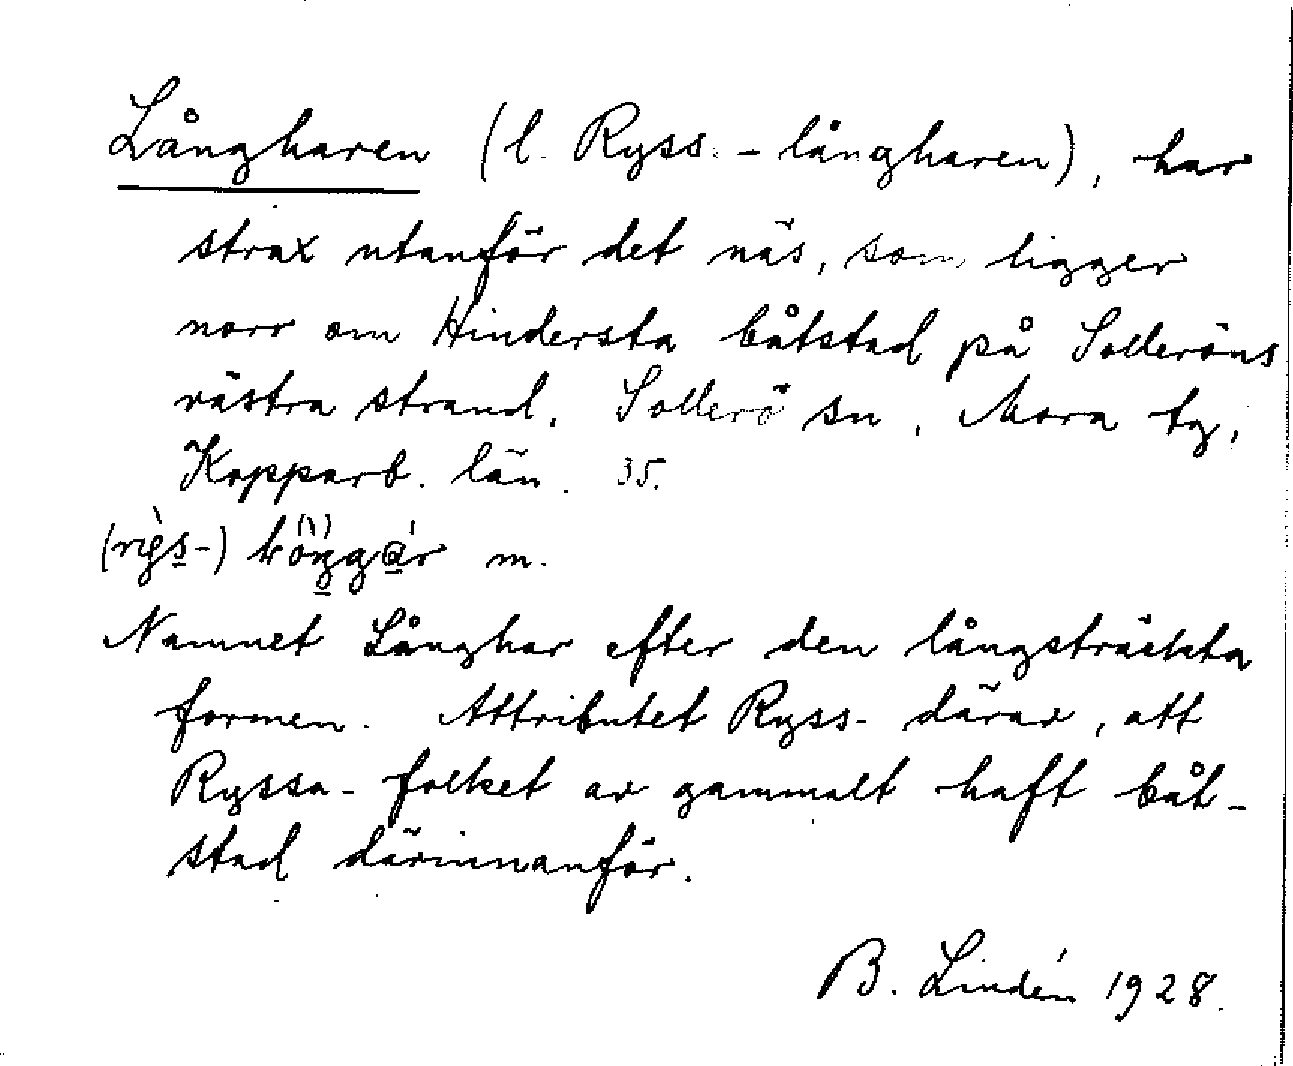 Långharen (l. Ryss. - långharen), har
strax utanför det näs, som ligger
norr om Hindersta båtstad på Solleröns
västra strand. Sollerö sn, Mora tg,
Kopparb. län. 35.
m.
Namnet Långhar efter den långsträckta
formen. Attributet Ryss- därav, att
Ryssa-folket av gammalt haft båt-
stad därinnanför.
B. Lindén 1928.